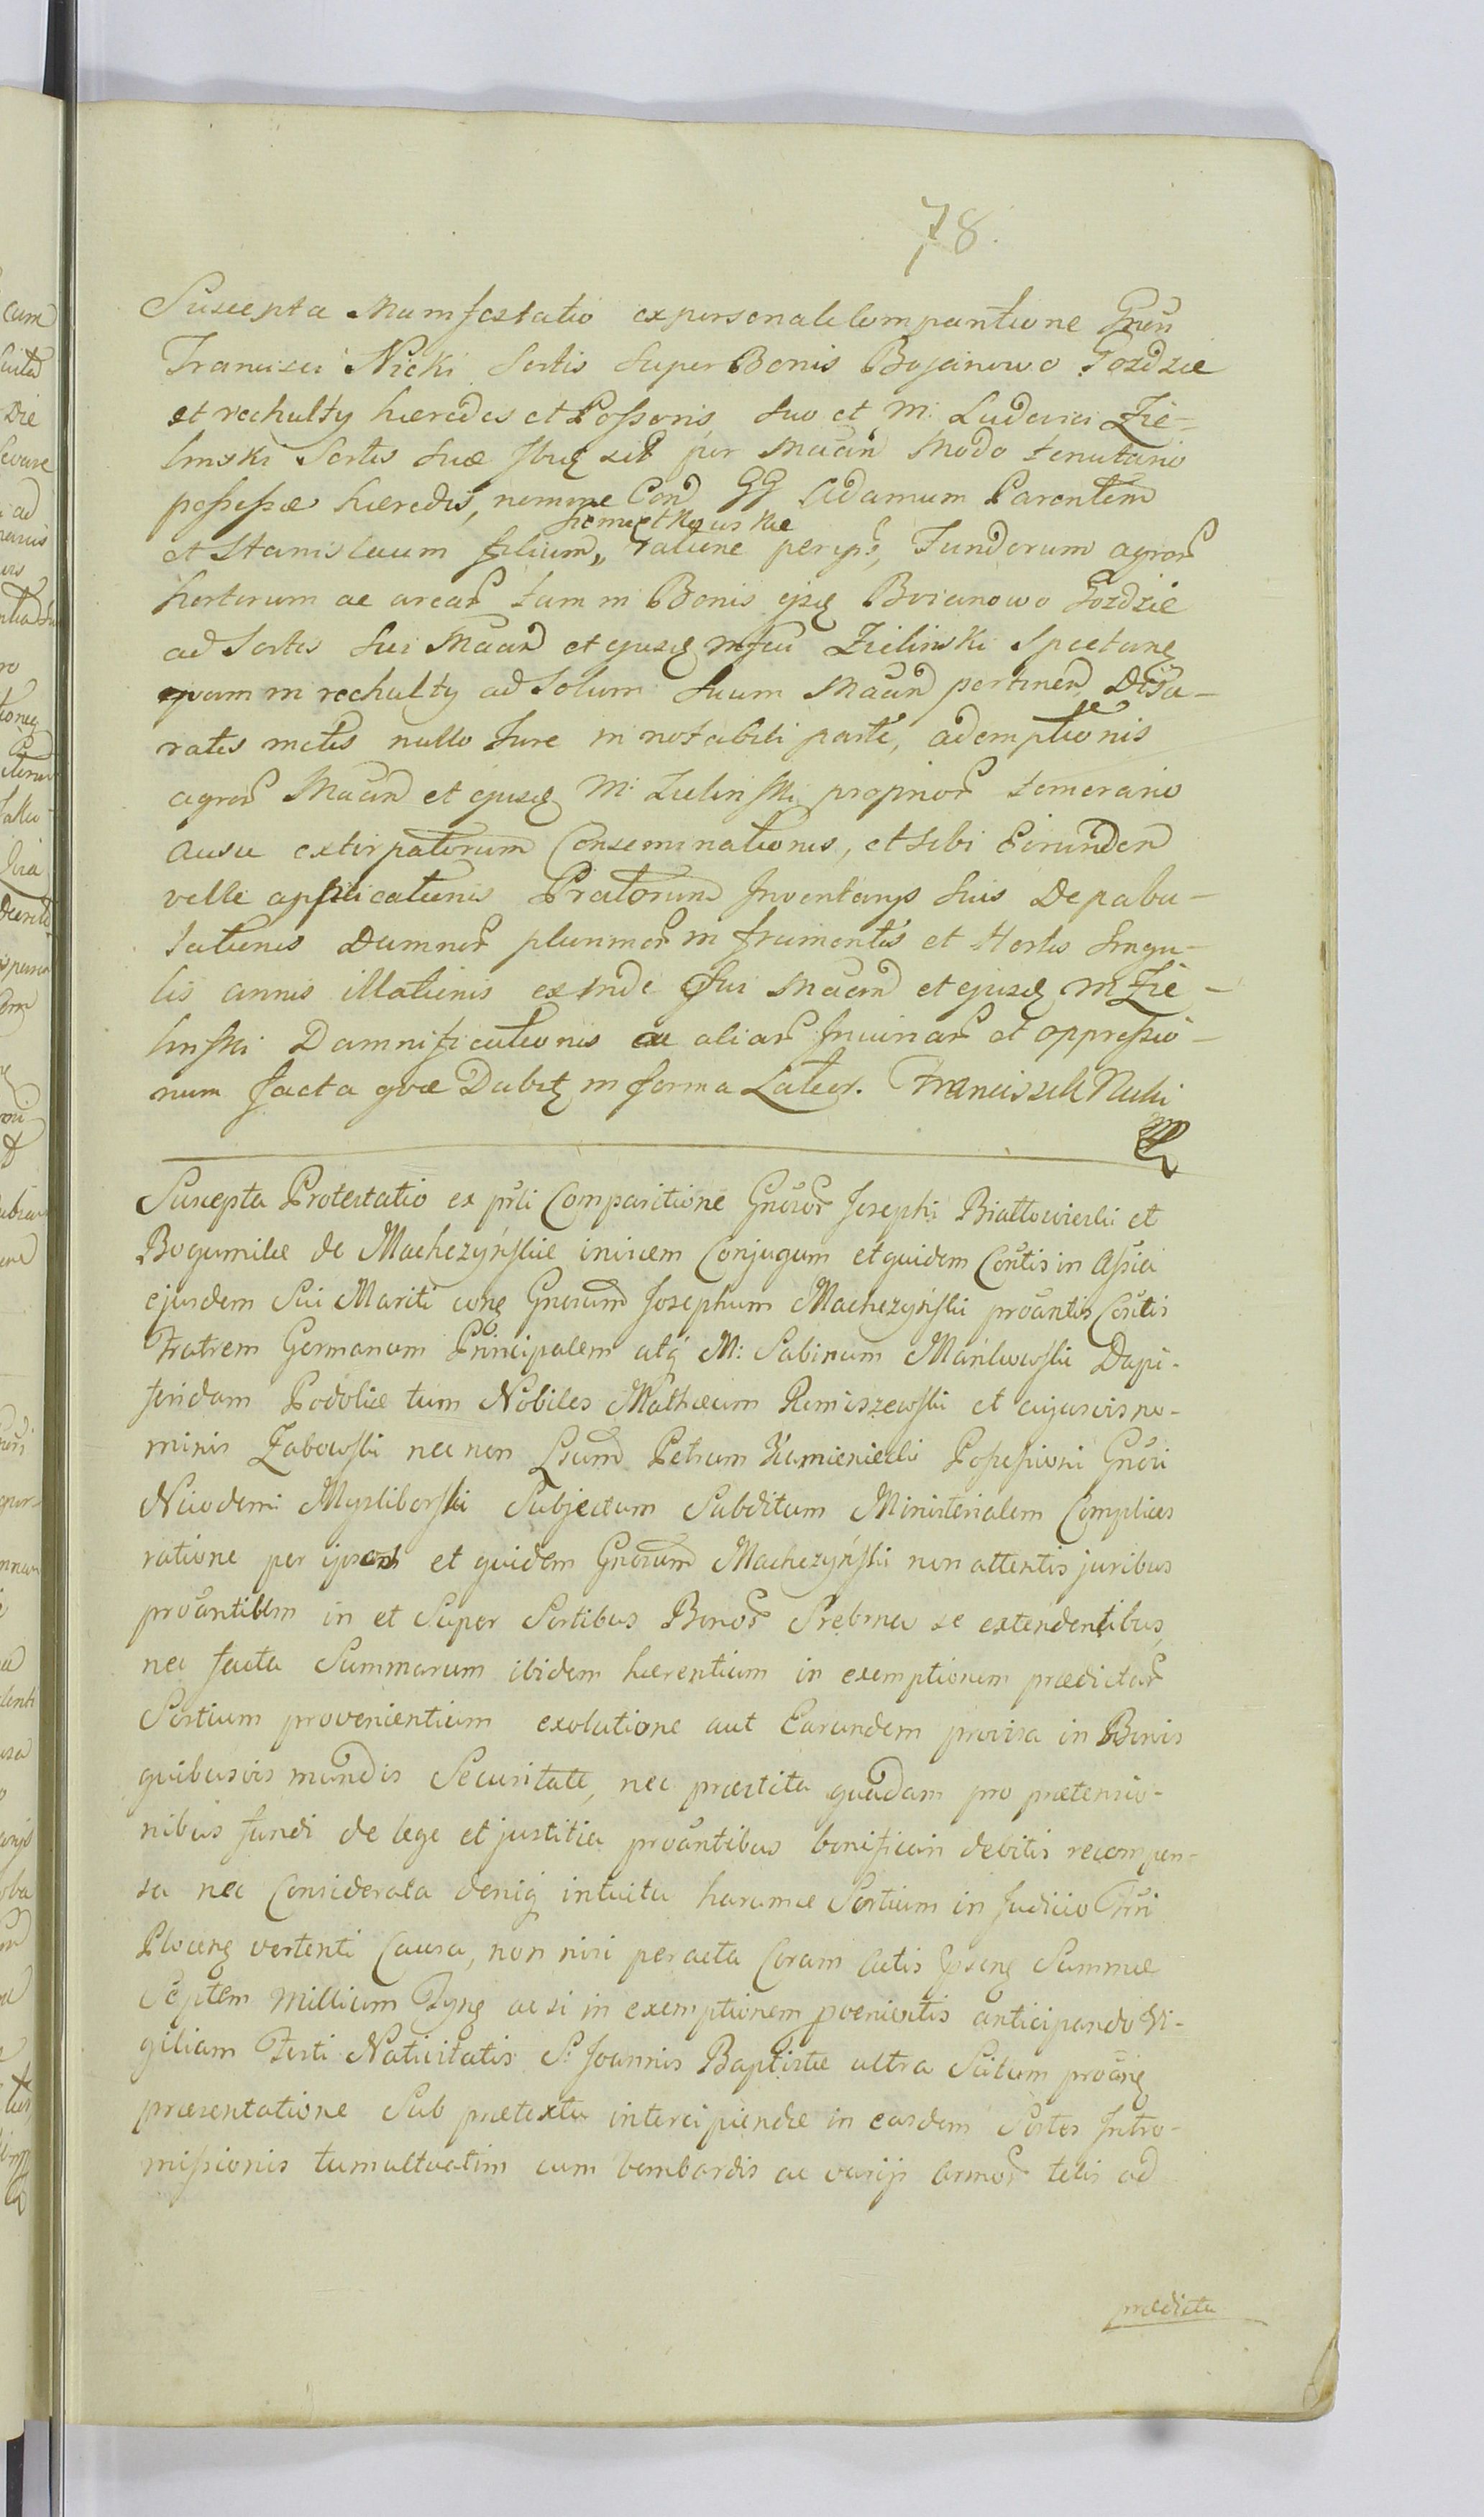 78.
Suscepta Manifestatio ex personali Comparitione Gnosi
Francisci Nicki Sortis super Bonis Bojanowo Gozdzie
et rechulty hæredis et Possoris, suo et M: Ludovici Zie-
linski Sortis suæ ibid per Mañ modo tenutario
possessæ hæredis, nomine Con GG Adamum Parentem
et Stanislaum filium, Siemiątkowskie ratione per ips, Fundorum agror
hortorum ac arear tam in Bonis ejsq Boianowo Gozdzie
ad Sortes sui Mañ et ejusq Mfci Zielinski Spectanq
quam in rechulty ad Solum suum Mañ pertinen, Disa-
ratis metis nullo Jure in notabili parte, ademptionis
agror Mañ et ejusq M: Zielinski proprior temerario
ausu extirpatorum Conseminationis, et sibi Eorunden
velle applicationis Pratorum Inventarys suis Depabu-
lationis Damnor plurimor in frumentis et Hortis singu-
lis annis illationis exinde sui Mañ et ejusq M Zie-
linski Damnificationis ac aliar Iniuriar et oppressio-
num facta quæ Dabit in forma Lateor. Franciszek Nicki
mp
Suscepta Protestatio ex prli Comparitione Gnosor Josephi Białłowieski et
Bogumilæ de Machczyńskie invicem Conjugum et quidem Contis in assia
ejusdem Sui Mariti conq Gnosum Josephum Machczyński proantis Contis
Fratrem Germanum Principalem atq M: Sabinum Mańkowski Dapi-
feridam Podoliæ tum Nobiles Mathæum Remiszewski et cujusvis no-
minis Zabowski nec non Lsum Petrum Kamieniecki Possessioni Gnosi
Nicodemi Mysliborski Subjectum Subditum Ministerialem Complices
ratione per ipsos et quidem Gnosum Machczyński non attentis juribus
proantibus in et Super Sortibus Bonor Srebrna se extendentibus,
nec facta Summarum ibidem hærentium in exemptionem prædictar
Sortium provenientium exolutione aut Earundem provisa in Bonis
quibusvis mundis Securitate, nec præstita quadam pro prætensio-
nibus fundi de lege et justitia proantibus bonificari debitis recompen-
sa nec Considerata deniq intuitu harumce Sortium in Judicio Trni
Plocenq vertenti Causa, non nisi peracta Coram Actis Ipsenq Summæ
Septem Millium Tynq ac si in exemptionem prænientis anticipando Vi-
giliam Festi Nativitatis S: Joannis Baptistæ ultra Scitum proanq
præsentatione Sub prætextu intercipiendæ in easdem Sortes Intro-
missionis tumultuatim cum bombardis ac varijs Armor telis ad
prædicta